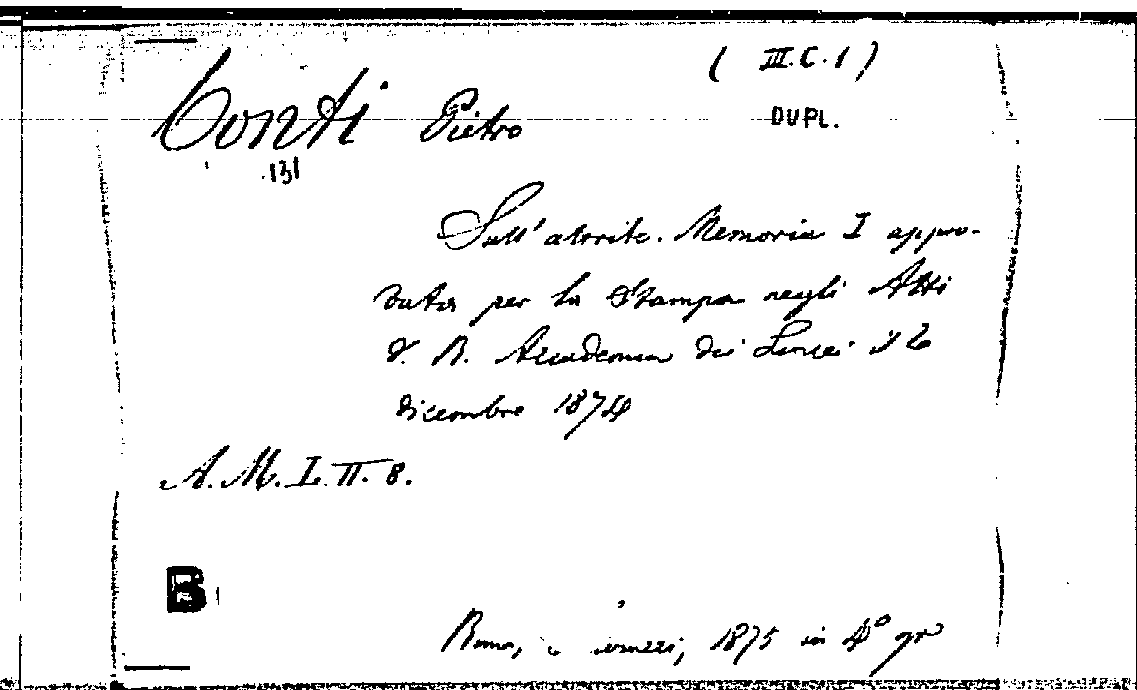 ( III.C.1 )
Conti Pietro
DUPL.
131
Sull' atorite. Memoria I appro-
vata per la Stampa negli Atti
d. R. Accademia dei Lincei il 6
dicembre 1874
A. M. I. II. 8.
B
Roma, 1875 in 4° gr